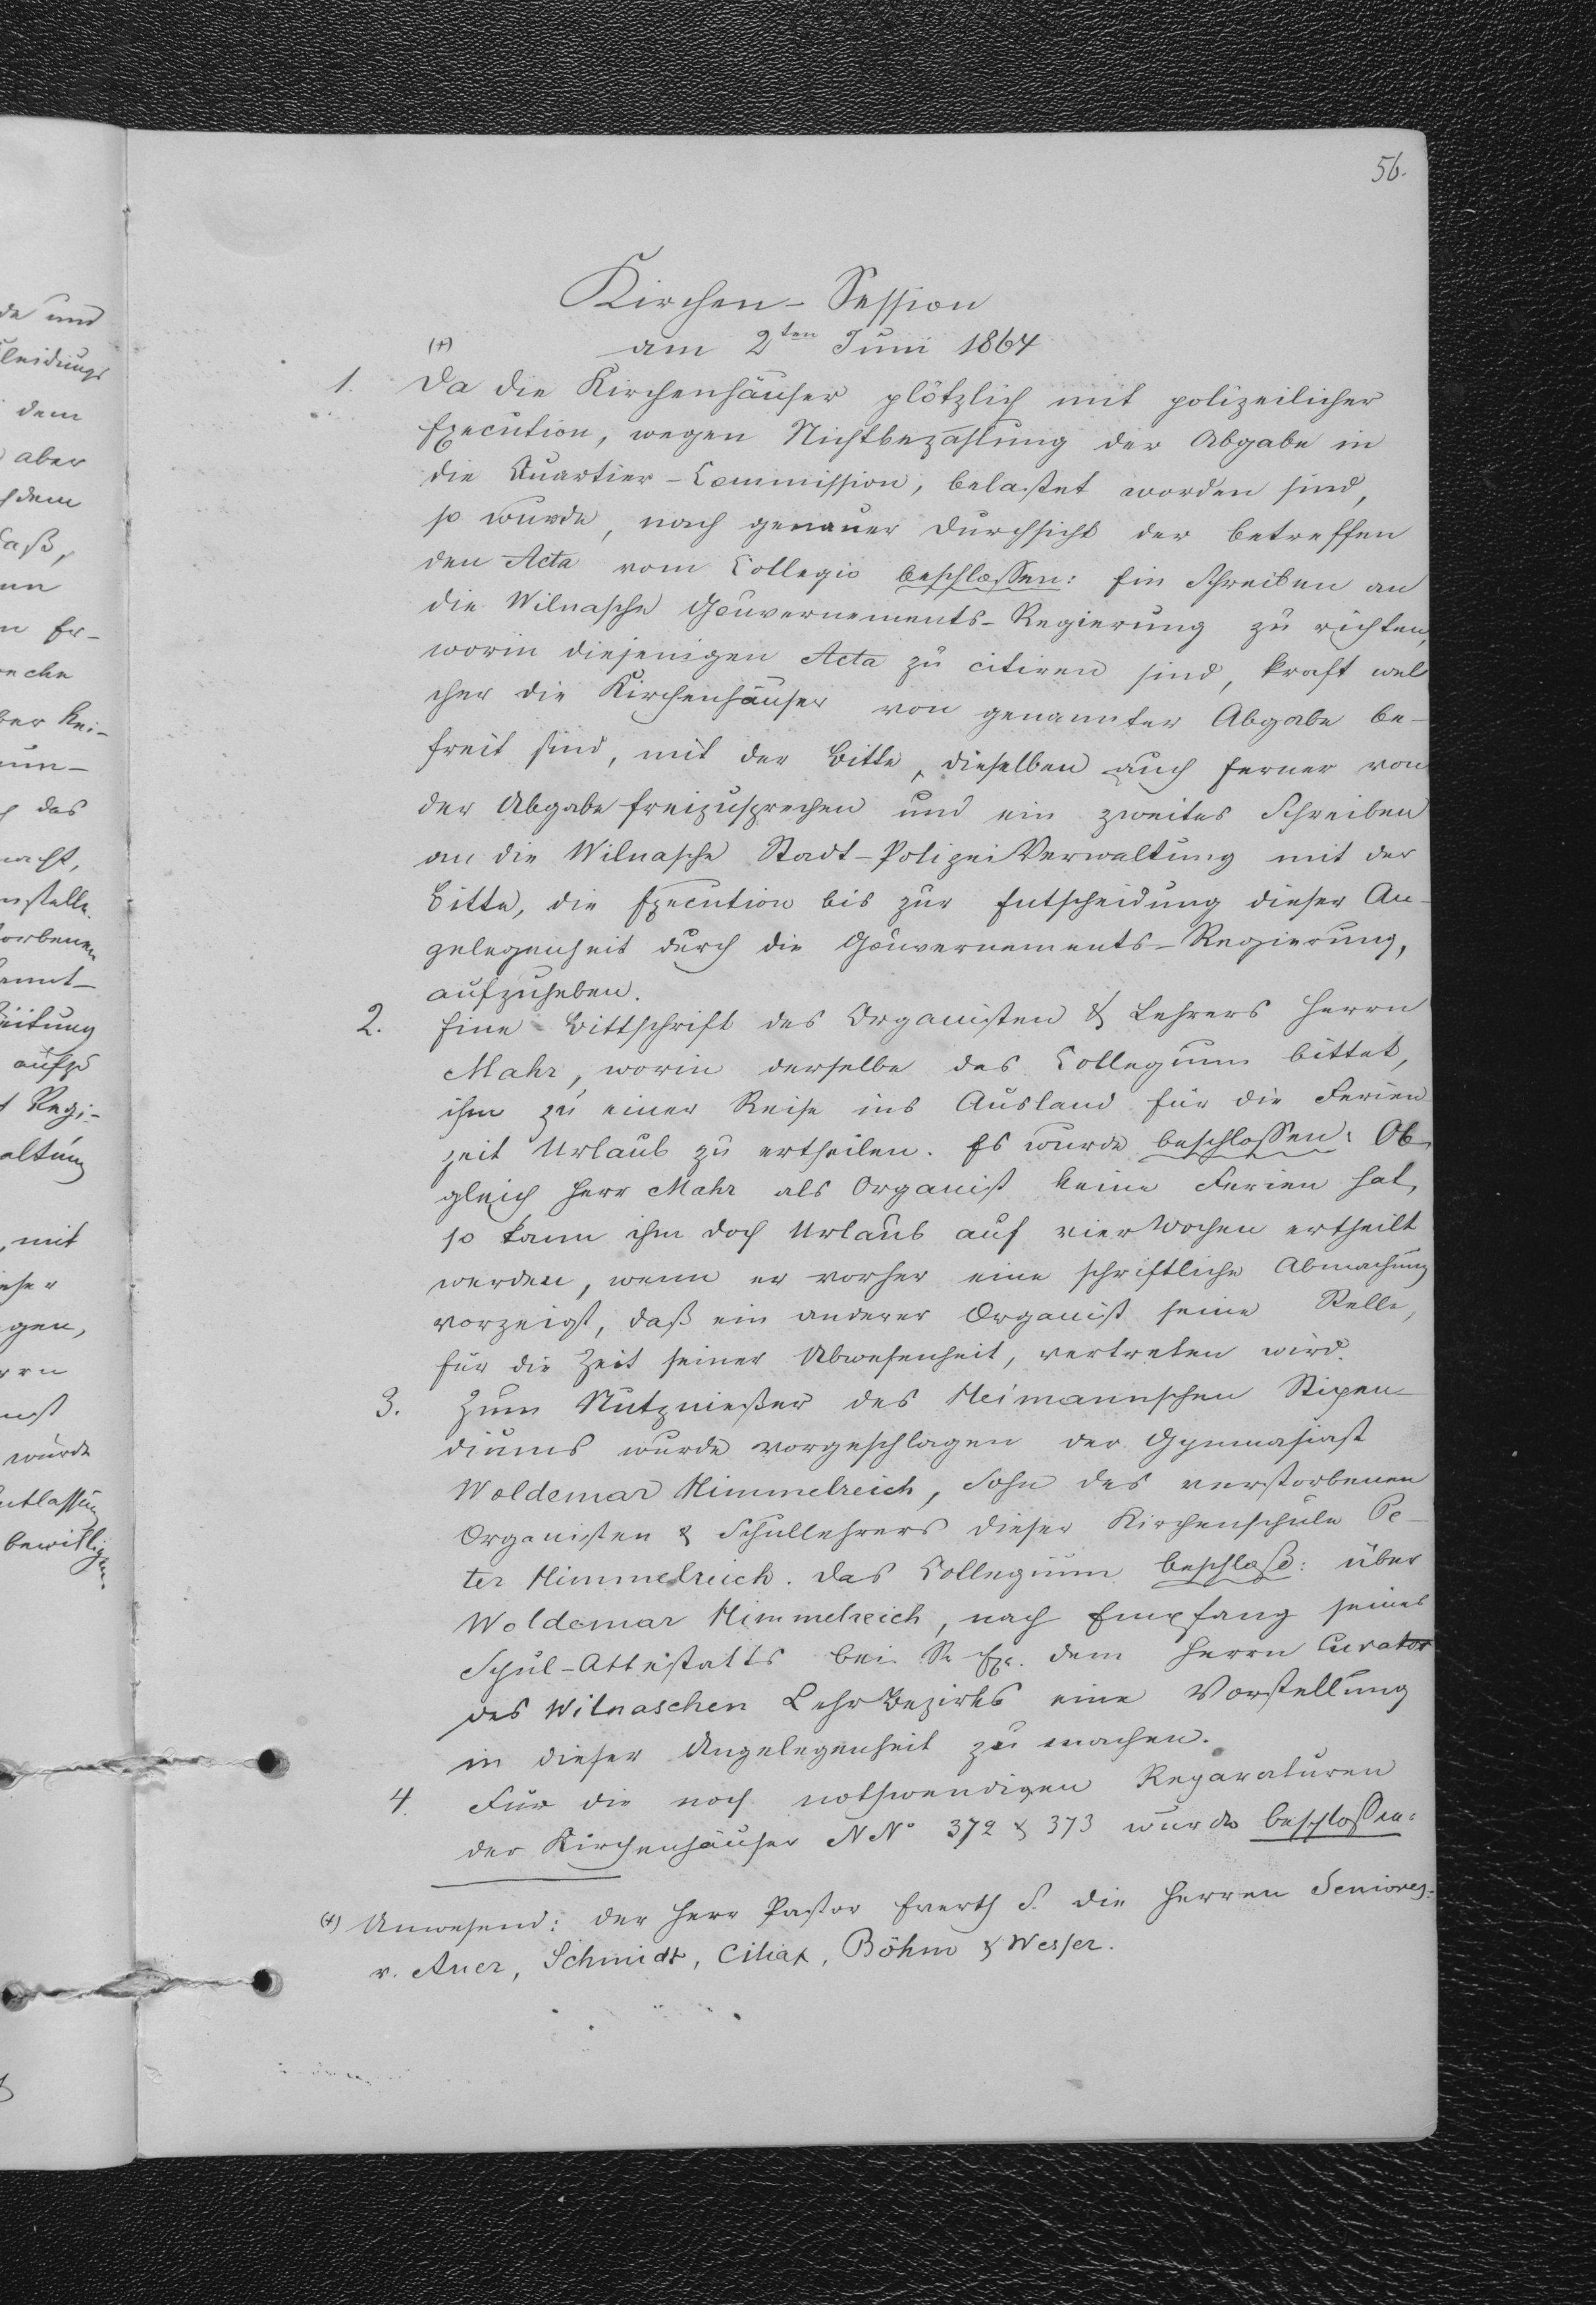 56.
Kirchen-Session
(+) am 2ten Juni 1864
1. Da die Kirchenhäuser plötzlich mit polizeilicher
Execution, wegen Nichtbezahlung der Abgabe in
die Quartier-Commission, belastet worden sind,
so wurde, nach genauer Durchsicht der betreffen
den Acta vom Collegio beschlossen: Ein Schreiben an
die Wilnasche Gouvernements-Regierung zu richten,
worin diejenigen Acta zu citiren sind, kraft wel
cher die Kirchenhäuser von genannter Abgabe be-
freit sind, mit der Bitte, dieselben auch ferner von
der Abgabe freizusprechen und ein zweites Schreiben
an die Wilnasche Stadt-Polizei Verwaltung mit der
Bitte, die Execution bis zur Entscheidung dieser An-
gelegenheit durch die Gouvernements-Regierung,
aufzuheben.
2. Eine Bittschrift des Organisten & Lehrers Herrn
Mahr, worin derselbe das Collegium bittet,
ihm zu einer Reise ins Ausland für die Ferien
zeit Urlaub zu ertheilen. Es wurde beschlossen: Ob
gleich Herr Mahr als Organist keine Ferien hat,
so kann ihm doch Urlaub auf vier Wochen ertheilt
werden, wenn er vorher eine schriftliche Abmachung
vorzeigt, daß ein anderer Organist seine Stelle,
für die Zeit seiner Abwesenheit, vertreten wird.
3. Zum Nutznießer des Heimannschen Stipen
diums wurde vorgeschlagen der Gymnasiast
Woldemar Himmelreich, Sohn des verstorbenen
Organisten & Schullehrers dieser Kirchenschule Pe-
ter Himmelreich. Das Collegium beschloß: über
Woldemar Himmelreich, nach Empfang seines
Schul-Attestatts bei Sr Exc. dem Herrn Curator
des Wilnaschen Lehrbezirks eine Vorstellung
in dieser Angelegenheit zu machen.
4. Für die noch nothwendigen Reparaturen
der Kirchenhäuser NNo 372 & 373 wurde beschlossen:
(+) Anwesend: der Herr Pastor Everth S. die Herren Seniores:
v. Auer, Schmidt, Ciliax, Böhm & Wesser.